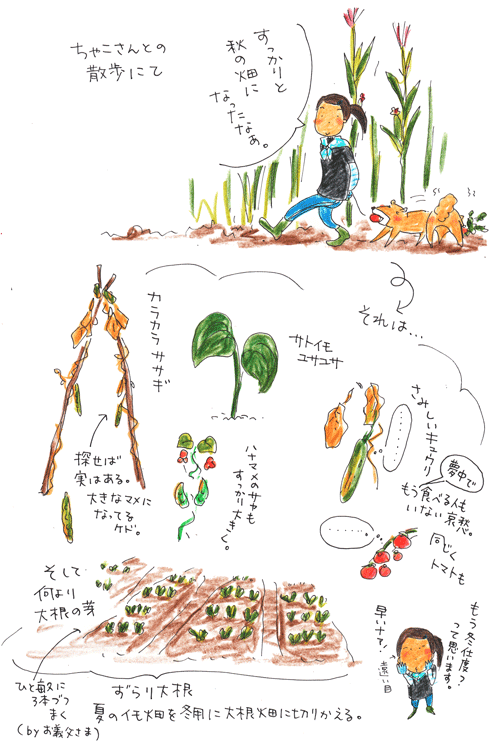 ちゃこさんとの
散歩にて
すっかりと
秋の畑に
なったなぁ。
それは…
カラカラササギ
探せば
実はある。
大きなマメに
なってる
ケド。
サトイモ
ユサユサ
ハナマメのサヤも
すっかり大きく。
さみしいキュウリ
夢中で
もう食べる人も
いない哀愁。
同じく
トマトも
そして
何より
大根の芽
ひと畝に
3本づつ
まく
(byお義父さま)
ずらり大根
夏のイモ畑を冬用に大根畑に切りかえる。
もう冬仕度?
って思います。
早いナす!
遠い目